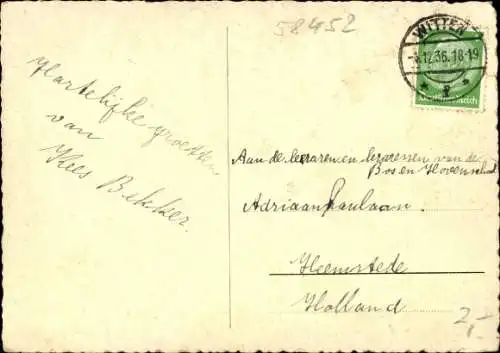 58452
WITTEN
-4.12.36.18-19
Deutsches Reich
Hartelijke groeten
van
Kees Bekker.
Aan de leeraren en leraressen van de
Bos en Hovenschool
Adriaan Paulaan.
Heemstede
Holland
2,-